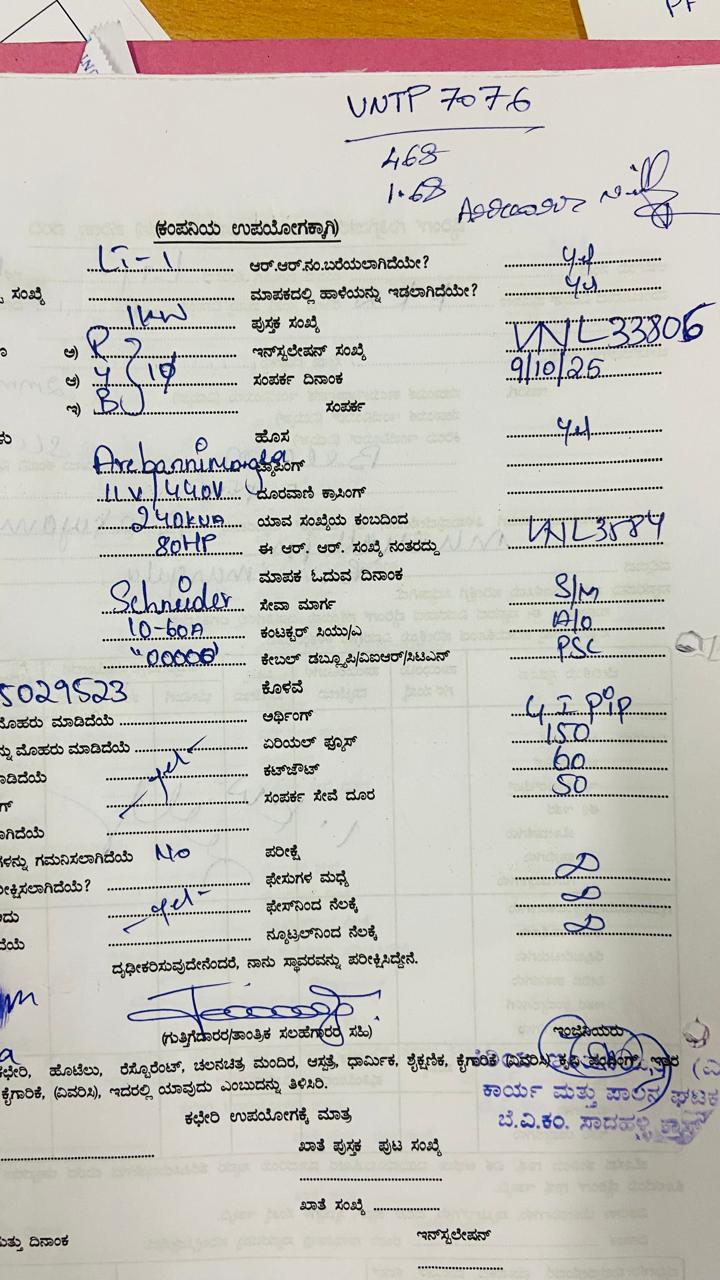 UNTP 7076
468
1.68
(ಕಂಪನಿಯ ಉಪಯೋಗಕ್ಕಾಗಿ)
LT-1 ಆರ್.ಆರ್.ನಂ.ಬರೆಯಲಾಗಿದೆಯೇ? yes
ಸಂಖ್ಯೆ ಮಾಪಕದಲ್ಲಿ ಹಾಳೆಯನ್ನು ಇಡಲಾಗಿದೆಯೇ? yes
1KW ಪುಸ್ತಕ ಸಂಖ್ಯೆ
ಅ) R ಇನ್‌ಸ್ಟಲೇಷನ್ ಸಂಖ್ಯೆ VNL33806
ಆ) Y 1ϕ ಸಂಪರ್ಕ ದಿನಾಂಕ 9/10/25
ಇ) B ಸಂಪರ್ಕ
ಹೊಸ yes
Arebannimangala ಟ್ಯಾಪಿಂಗ್
11V/440V ದೂರವಾಣಿ ಕ್ರಾಸಿಂಗ್
240KVA ಯಾವ ಸಂಖ್ಯೆಯ ಕಂಬದಿಂದ
80HP ಈ ಆರ್. ಆರ್. ಸಂಖ್ಯೆ ನಂತರದ್ದು VNL3584
ಮಾಪಕ ಓದುವ ದಿನಾಂಕ
Schneider ಸೇವಾ ಮಾರ್ಗ S/M
10-60A ಕಂಟಕ್ಟರ್ ಸಿಯು/ಎ A/0
"00006 ಕೇಬಲ್ ಡಬ್ಲ್ಯೂಪಿ/ವಿಐಆರ್/ಸಿಟಿಎನ್ PSC
5029523 ಕೊಳವೆ
ಮೊಹರು ಮಾಡಿದೆಯೆ ಅರ್ಥಿಂಗ್ G I pip
ನ್ನು ಮೊಹರು ಮಾಡಿದೆಯೆ ಏರಿಯಲ್ ಫ್ಯೂಸ್ 150
ಾಡಿದೆಯೆ -yes- ಕಟ್‌ಔಟ್ 60
ಗ್ ಸಂಪರ್ಕ ಸೇವೆ ದೂರ 50
ಾಗಿದೆಯೆ
ಗಳನ್ನು ಗಮನಿಸಲಾಗಿದೆಯೆ No ಪರೀಕ್ಷೆ
ೀಕ್ಷಿಸಲಾಗಿದೆಯೆ? ಫೇಸುಗಳ ಮಧ್ಯೆ ∞
-yes- ಫೇಸ್‌ನಿಂದ ನೆಲಕ್ಕೆ ∞
ದೆಯೆ ನ್ಯೂಟ್ರಲ್‌ನಿಂದ ನೆಲಕ್ಕೆ ∞
ದೃಢೀಕರಿಸುವುದೇನೆಂದರೆ, ನಾನು ಸ್ಥಾವರವನ್ನು ಪರೀಕ್ಷಿಸಿದ್ದೇನೆ.
(ಗುತ್ತಿಗೆದಾರರ/ತಾಂತ್ರಿಕ ಸಲಹೆಗಾರರ ಸಹಿ) ಇಂಜಿನಿಯರು
ಕಛೇರಿ, ಹೊಟೆಲು, ರೆಸ್ಟೊರೆಂಟ್, ಚಲನಚಿತ್ರ ಮಂದಿರ, ಆಸ್ಪತ್ರೆ, ಧಾರ್ಮಿಕ, ಶೈಕ್ಷಣಿಕ, ಕೈಗಾರಿಕೆ (ವಿವರಿಸಿ) ಕೃಷಿ ಪಂಪಿಂಗ್, ಇತರ
ಕೈಗಾರಿಕೆ, (ವಿವರಿಸಿ), ಇದರಲ್ಲಿ ಯಾವುದು ಎಂಬುದನ್ನು ತಿಳಿಸಿರಿ.
ಕಾರ್ಯ ಮತ್ತು ಪಾಲನ ಘಟಕ
ಕಛೇರಿ ಉಪಯೋಗಕ್ಕೆ ಮಾತ್ರ ಬೆ.ವಿ.ಕಂ. ಸಾದಹಳ್ಳಿ
ಖಾತೆ ಪುಸ್ತಕ ಪುಟ ಸಂಖ್ಯೆ
ಖಾತೆ ಸಂಖ್ಯೆ
ಮತ್ತು ದಿನಾಂಕ ಇನ್‌ಸ್ಟಲೇಷನ್